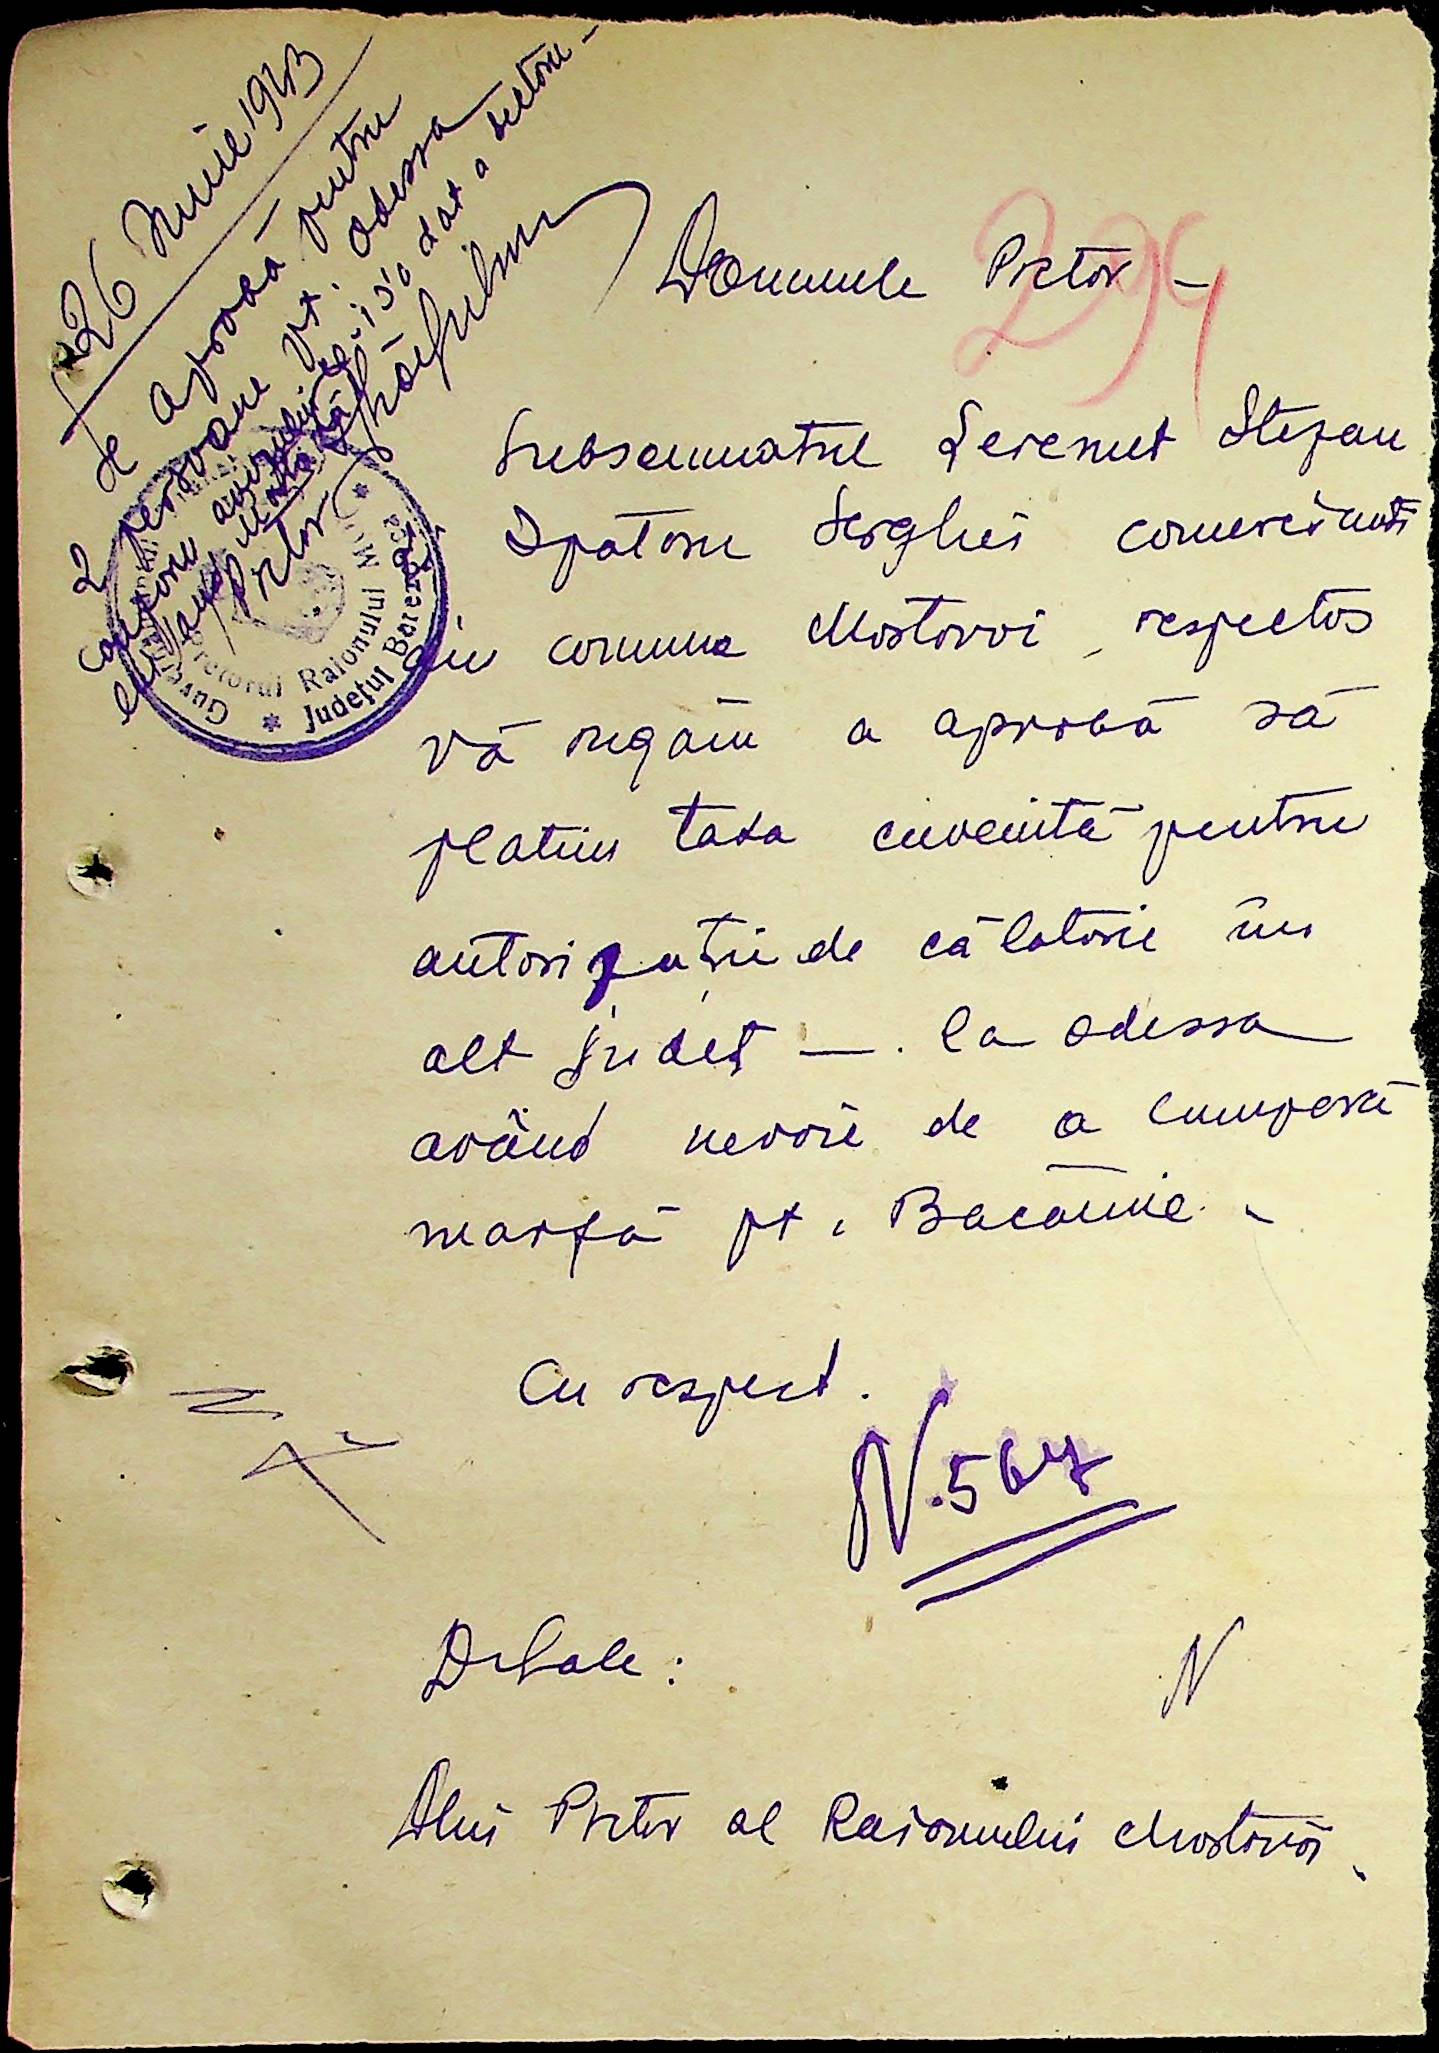 26 Iunie 1943
Se aprobă pentru
2 persoane pt. Odessa
conform avizului
dat a
Pretor
Guver
Pretorul Raionului Mo
Județul Berezo
294
Domnule Pretor –
Subsemnatul Stefan
Spatoru Serghei comercianti
din comuna Mostovoi, respectos
vă rugăm a aprobă să
platim taxa cuvenită pentru
autorizații de călatorie în
alt județ —. la Odessa
având nevoie de a cumpără
marfă pt. Bacănie.
Cu respect.
N. 567
Dsale:
N
Dlui Pretor al Raionului Mostovoi.